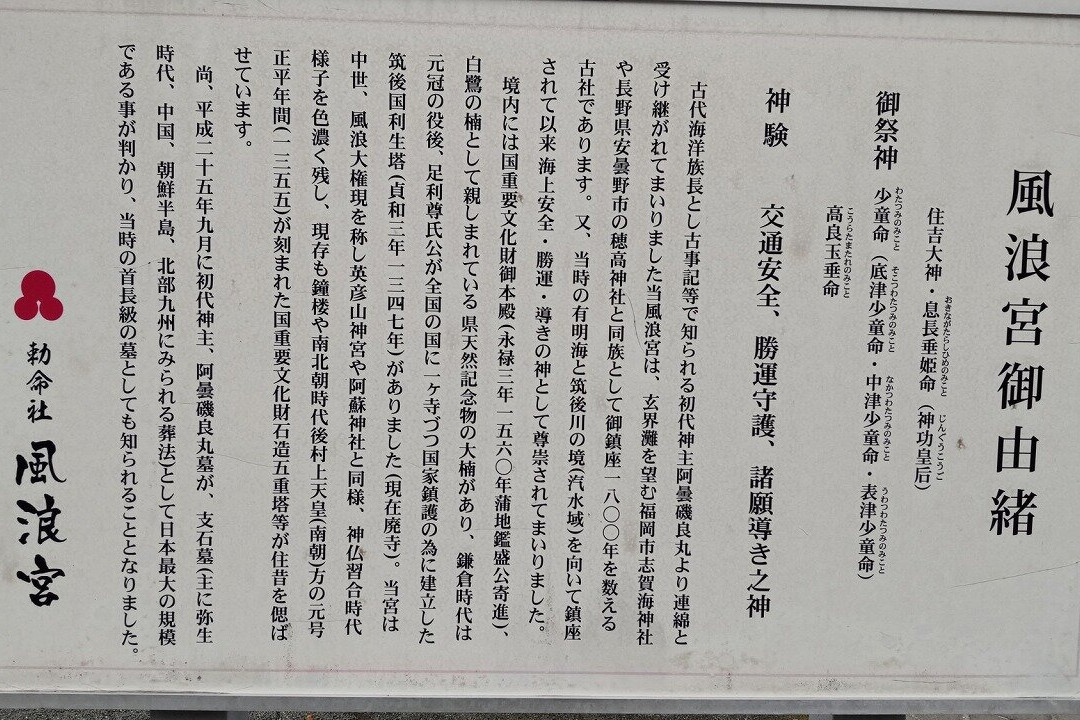 風浪宮御由緒
住吉大神・息長垂姫命（神功皇后）
おきながたらしひめのみこと じんぐうこうご
御祭神 少童命（底津少童命・中津少童命・表津少童命）
わたつみのみこと そこつわたつみのみこと なかつわたつみのみこと うわつわたつみのみこと
高良玉垂命
こうらたまたれのみこと
神験 交通安全、勝運守護、諸願導き之神
古代海洋族長とし古事記等で知られる初代神主阿曇磯良丸より連綿と
受け継がれてまいりました当風浪宮は、玄界灘を望む福岡市志賀海神社
や長野県安曇野市の穂高神社と同族として御鎮座一八〇〇年を数える
古社であります。又、当時の有明海と筑後川の境(汽水域)を向いて鎮座
されて以来 海上安全・勝運・導きの神として尊崇されてまいりました。
境内には国重要文化財御本殿(永禄三年一五六〇年蒲地鑑盛公寄進)、
白鷺の楠として親しまれている県天然記念物の大楠があり、鎌倉時代は
元冠の役後、足利尊氏公が全国の国に一ヶ寺づつ国家鎮護の為に建立した
筑後国利生塔(貞和三年 一三四七年)がありました(現在廃寺)。当宮は
中世、風浪大権現を称し英彦山神宮や阿蘇神社と同様、神仏習合時代
様子を色濃く残し、現存も鐘楼や南北朝時代後村上天皇(南朝)方の元号
正平年間(一三五五)が刻まれた国重要文化財石造五重塔等が住昔を偲ば
せています。
尚、平成二十五年九月に初代神主、阿曇磯良丸墓が、支石墓(主に弥生
時代、中国、朝鮮半島、北部九州にみられる葬法)として日本最大の規模
である事が判かり、当時の首長級の墓としても知られることとなりました。
勅命社 風浪宮